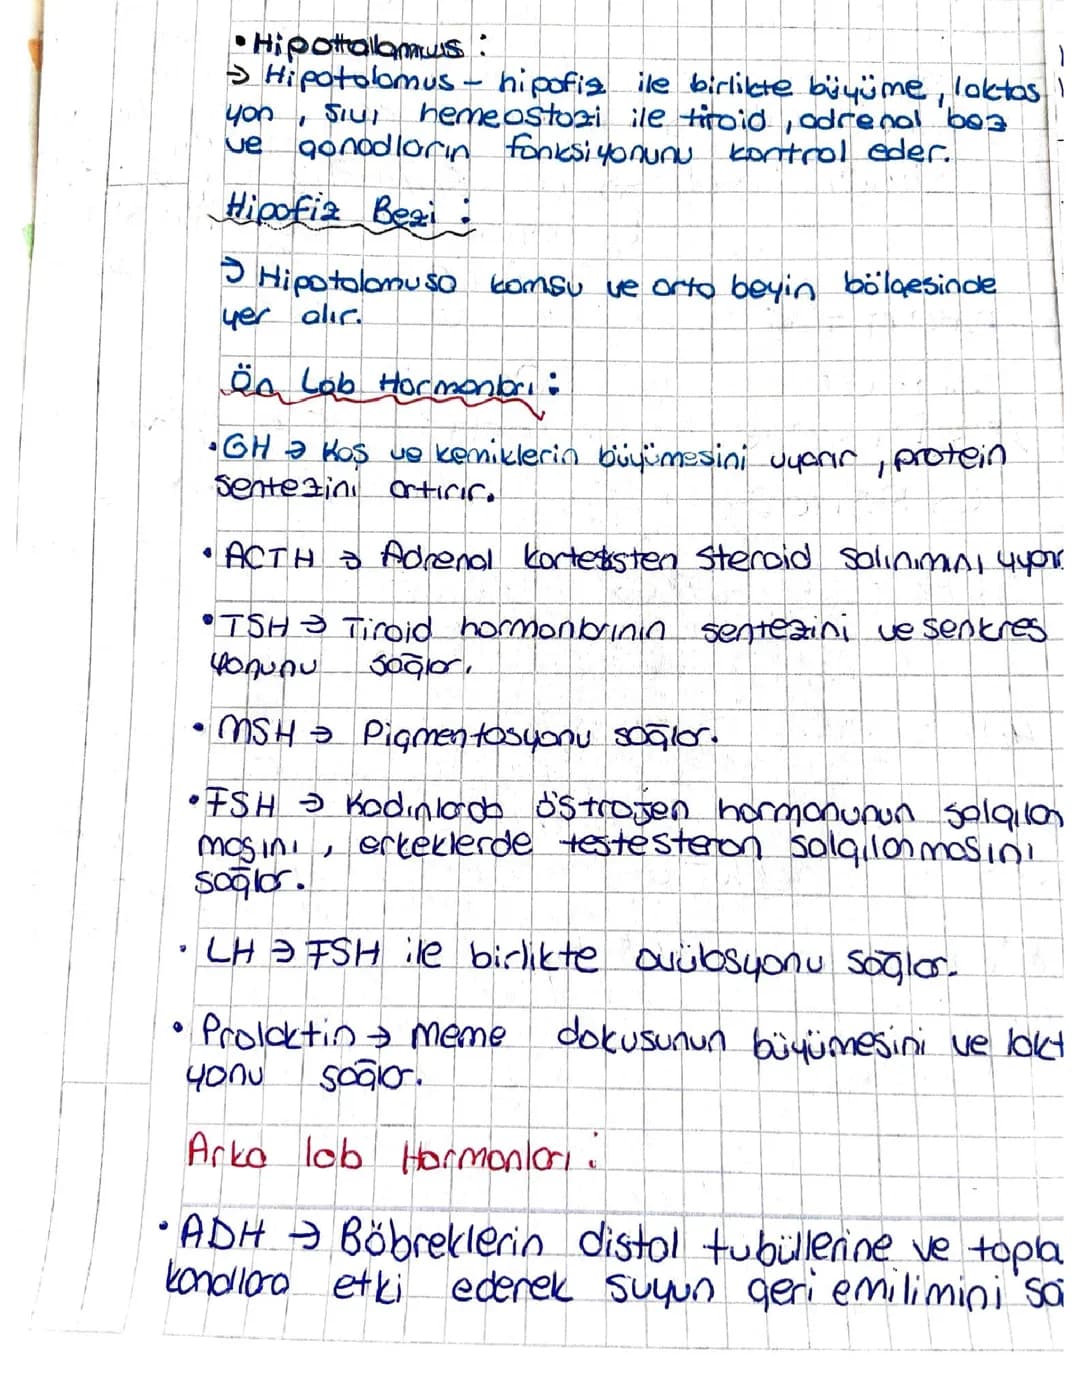 • Hipottalamus :
→ Hipotolamus - hipofiz ile birlikte büyüme, laktas
yon , sıvı hemeostazi ile tiroid , adrenal bez
ve gonadların fonksiyonunu kontrol eder.
Hipofiz Bezi :
→ Hipotalamusa komsu ve orta beyin bölgesinde
yer alır.
Ön Lob Hormonları :
• GH → Kas ve kemiklerin büyümesini uyarır , protein
sentezini artırır.
• ACTH → Adrenal korteksten steroid salınımını uyar
• TSH → Tiroid hormonlarının sentezini ve senkres
yonunu sağlar.
• MSH → Pigmentasyonu sağlar.
• FSH → Kadınlarda östrojen hormonunun salgılan
masını , erkeklerde testesteron salgılanmasını
sağlar.
• LH → FSH ile birlikte ovülasyonu sağlar.
• Prolaktin → meme dokusunun büyümesini ve lakt
yonu sağlar.
Arka lob Hormonları :
• ADH → Böbreklerin distal tubüllerine ve topla
kanallara etki ederek suyun geri emilimini sa